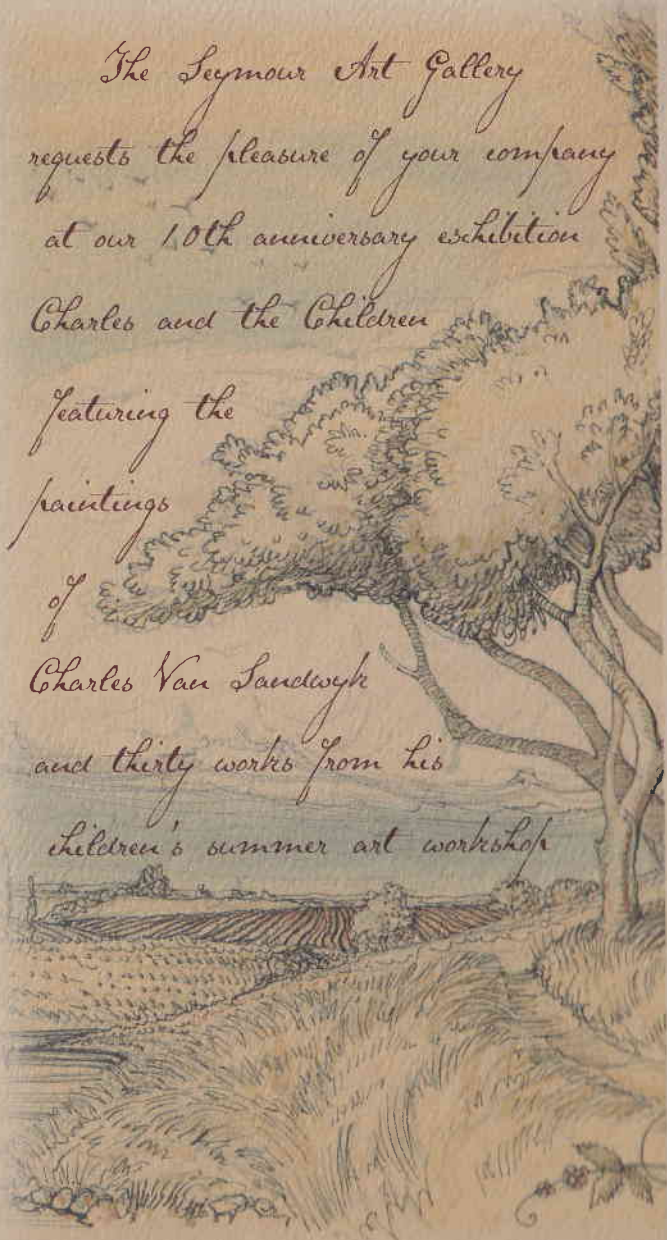 The Seymour Art Gallery
requests the pleasure of your company
at our 10th anniversary exhibition
Charles and the Children
featuring the
paintings
of
Charles Van Sandwyk
and thirty works from his
children's summer art workshop